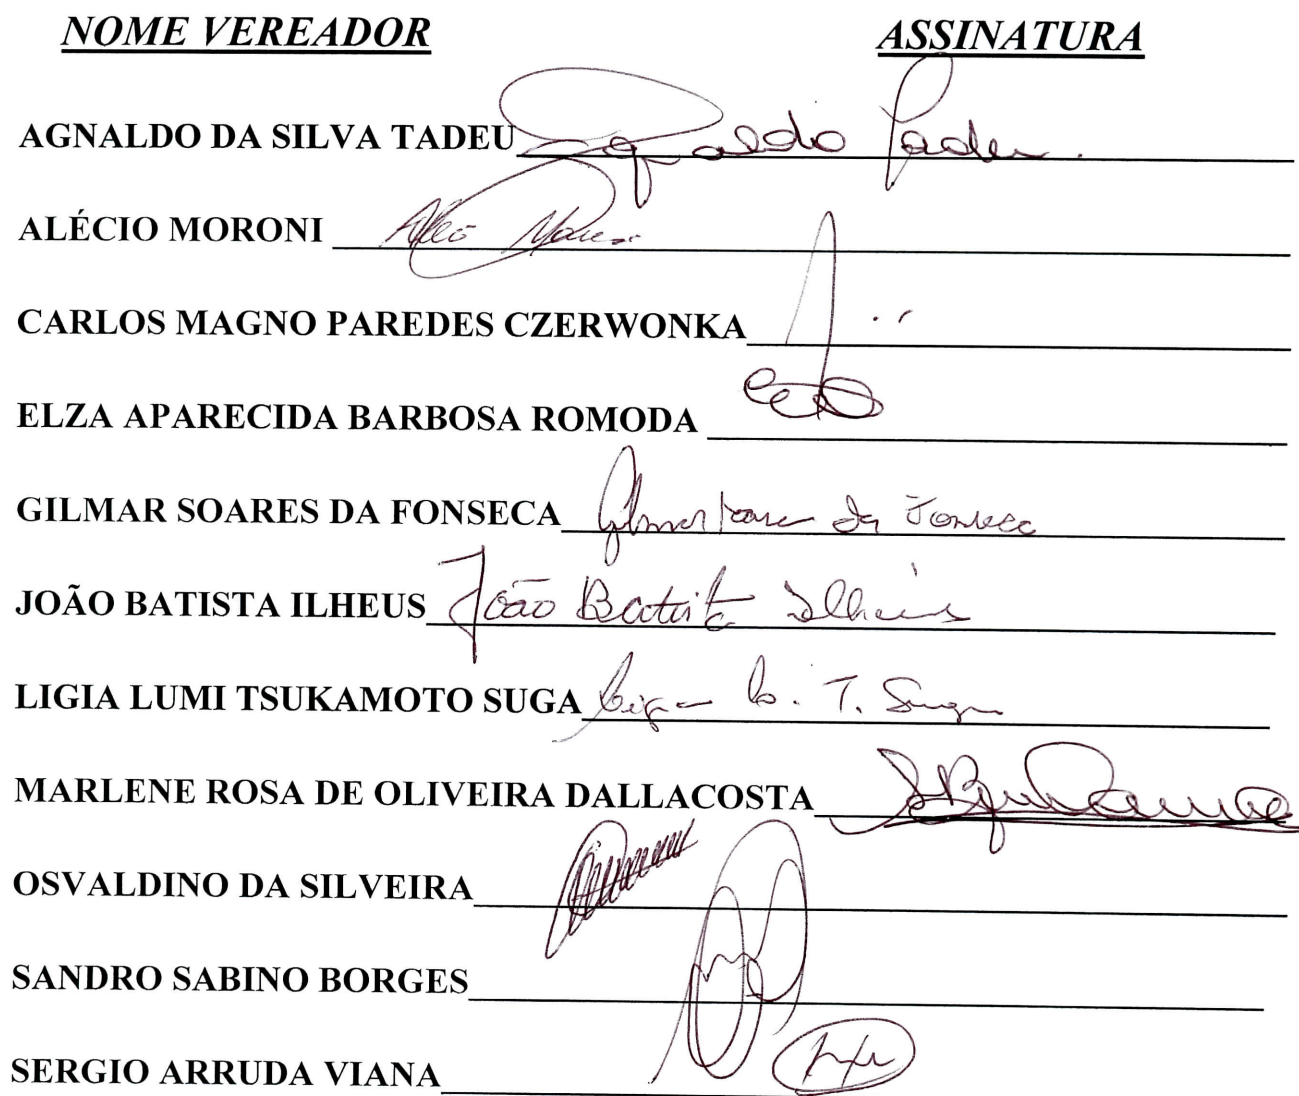 NOME VEREADOR ASSINATURA
AGNALDO DA SILVA TADEU Agnaldo Tadeu.
ALÉCIO MORONI Alécio Moroni
CARLOS MAGNO PAREDES CZERWONKA
ELZA APARECIDA BARBOSA ROMODA
GILMAR SOARES DA FONSECA Gilmar Soares da Fonseca
JOÃO BATISTA ILHEUS João Batista Ilhéus
LIGIA LUMI TSUKAMOTO SUGA Ligia L. T. Suga
MARLENE ROSA DE OLIVEIRA DALLACOSTA
OSVALDINO DA SILVEIRA
SANDRO SABINO BORGES
SERGIO ARRUDA VIANA